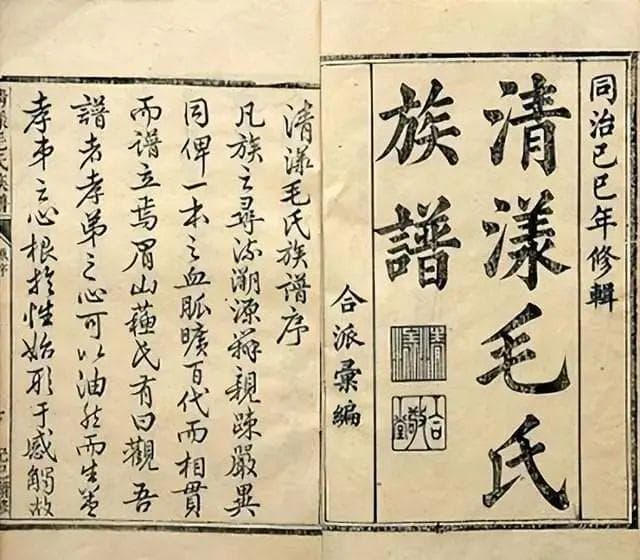 同治己巳年修輯
清漾毛氏
族譜
合派彙編
清漾毛氏族譜序
凡族之尋流溯源辨親疎嚴異
同俾一本之血脈曠百代而相貫
而譜立焉眉山蘇氏有曰觀吾
譜者孝弟之心可以油然而生蓋
孝弟之心根於性始形于感觸故
清漾毛氏族譜